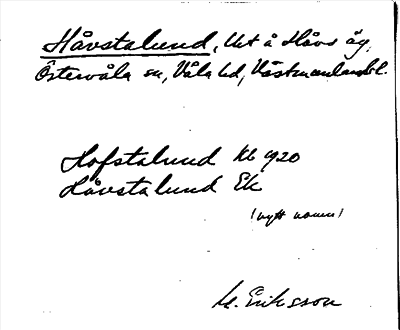 Håvstalund, Ut å Håvs äg,
Östervåla sn, Våla hd, Västmanlands l.
Hofstalund Kb 1920
Håvstalund Ek
(nytt namn)
M. Eriksson